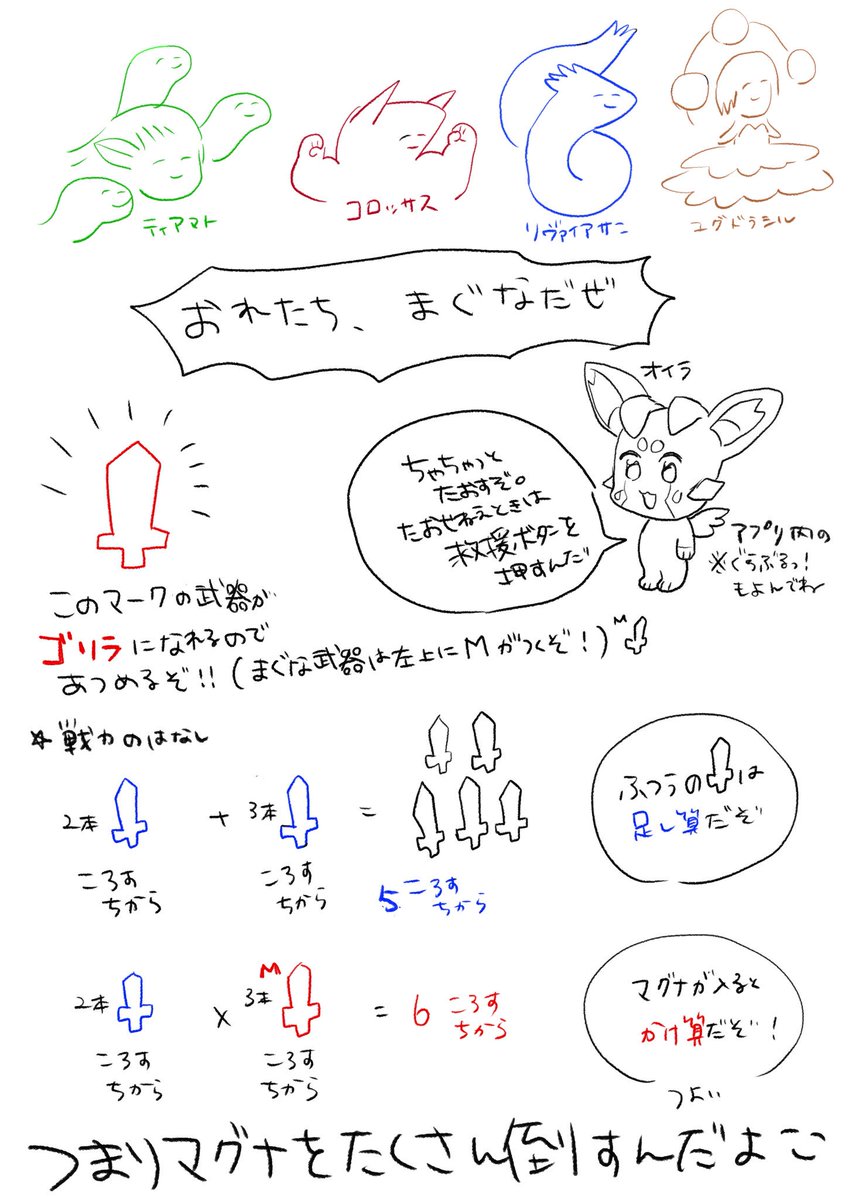 ティアマト
コロッサス
リヴァイアサン
ユグドラシル
おれたち、まぐなだぜ
オイラ
ちゃちゃっと
たおすぞ。
たおせねえときは
救援ボタンを
押すんだ
アプリ内の
※ぐらぶるっ!
もよんでね
このマークの武器が
ゴリラになれるので
あつめるぞ!!(まぐな武器は左上にMがつくぞ!)M
*戦力のはなし
2本 + 3本 =
ころす
ちから
ころす
ちから
5ころす
ちから
ふつうのは
足し算だぞ
2本 × 3本 M = 6ころす
ちから
ころす
ちから
ころす
ちから
マグナが入ると
かけ算だぞ!
つよい
つまりマグナをたくさん倒すんだよこ